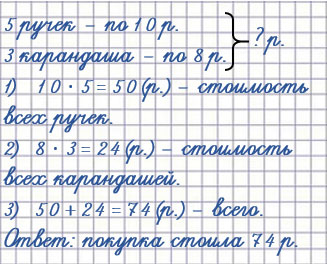 5 ручек – по 10 р.
3 карандаша – по 8 р.
? р.
1) 10 · 5 = 50 (р.) – стоимость
всех ручек.
2) 8 · 3 = 24 (р.) – стоимость
всех карандашей.
3) 50 + 24 = 74 (р.) – всего.
Ответ: покупка стоила 74 р.